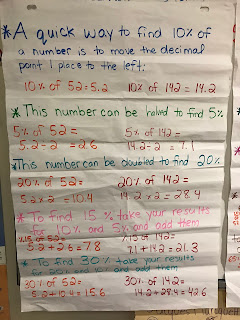 *A quick way to find 10% of
a number is to move the decimal
point 1 place to the left.
10% of 52=5.2 10% of 142=14.2
*This number can be halved to find 5%
5% of 52= 5% of 142=
5.2÷2=2.6 14.2÷2=7.1
*This number can be doubled to find 20%
20% of 52= 20% of 142=
5.2x2=10.4 14.2x2=28.4
*To find 15% take your results
for 10% and 5% and add them
15% of 52= 15% of 142=
5.2+2.6=7.8 7.1+14.2=21.3
*To find 30% take your results
for 20% and 10% and add them
30% of 52= 30% of 142=
5.2+10.4=15.6 14.2+28.4=42.6